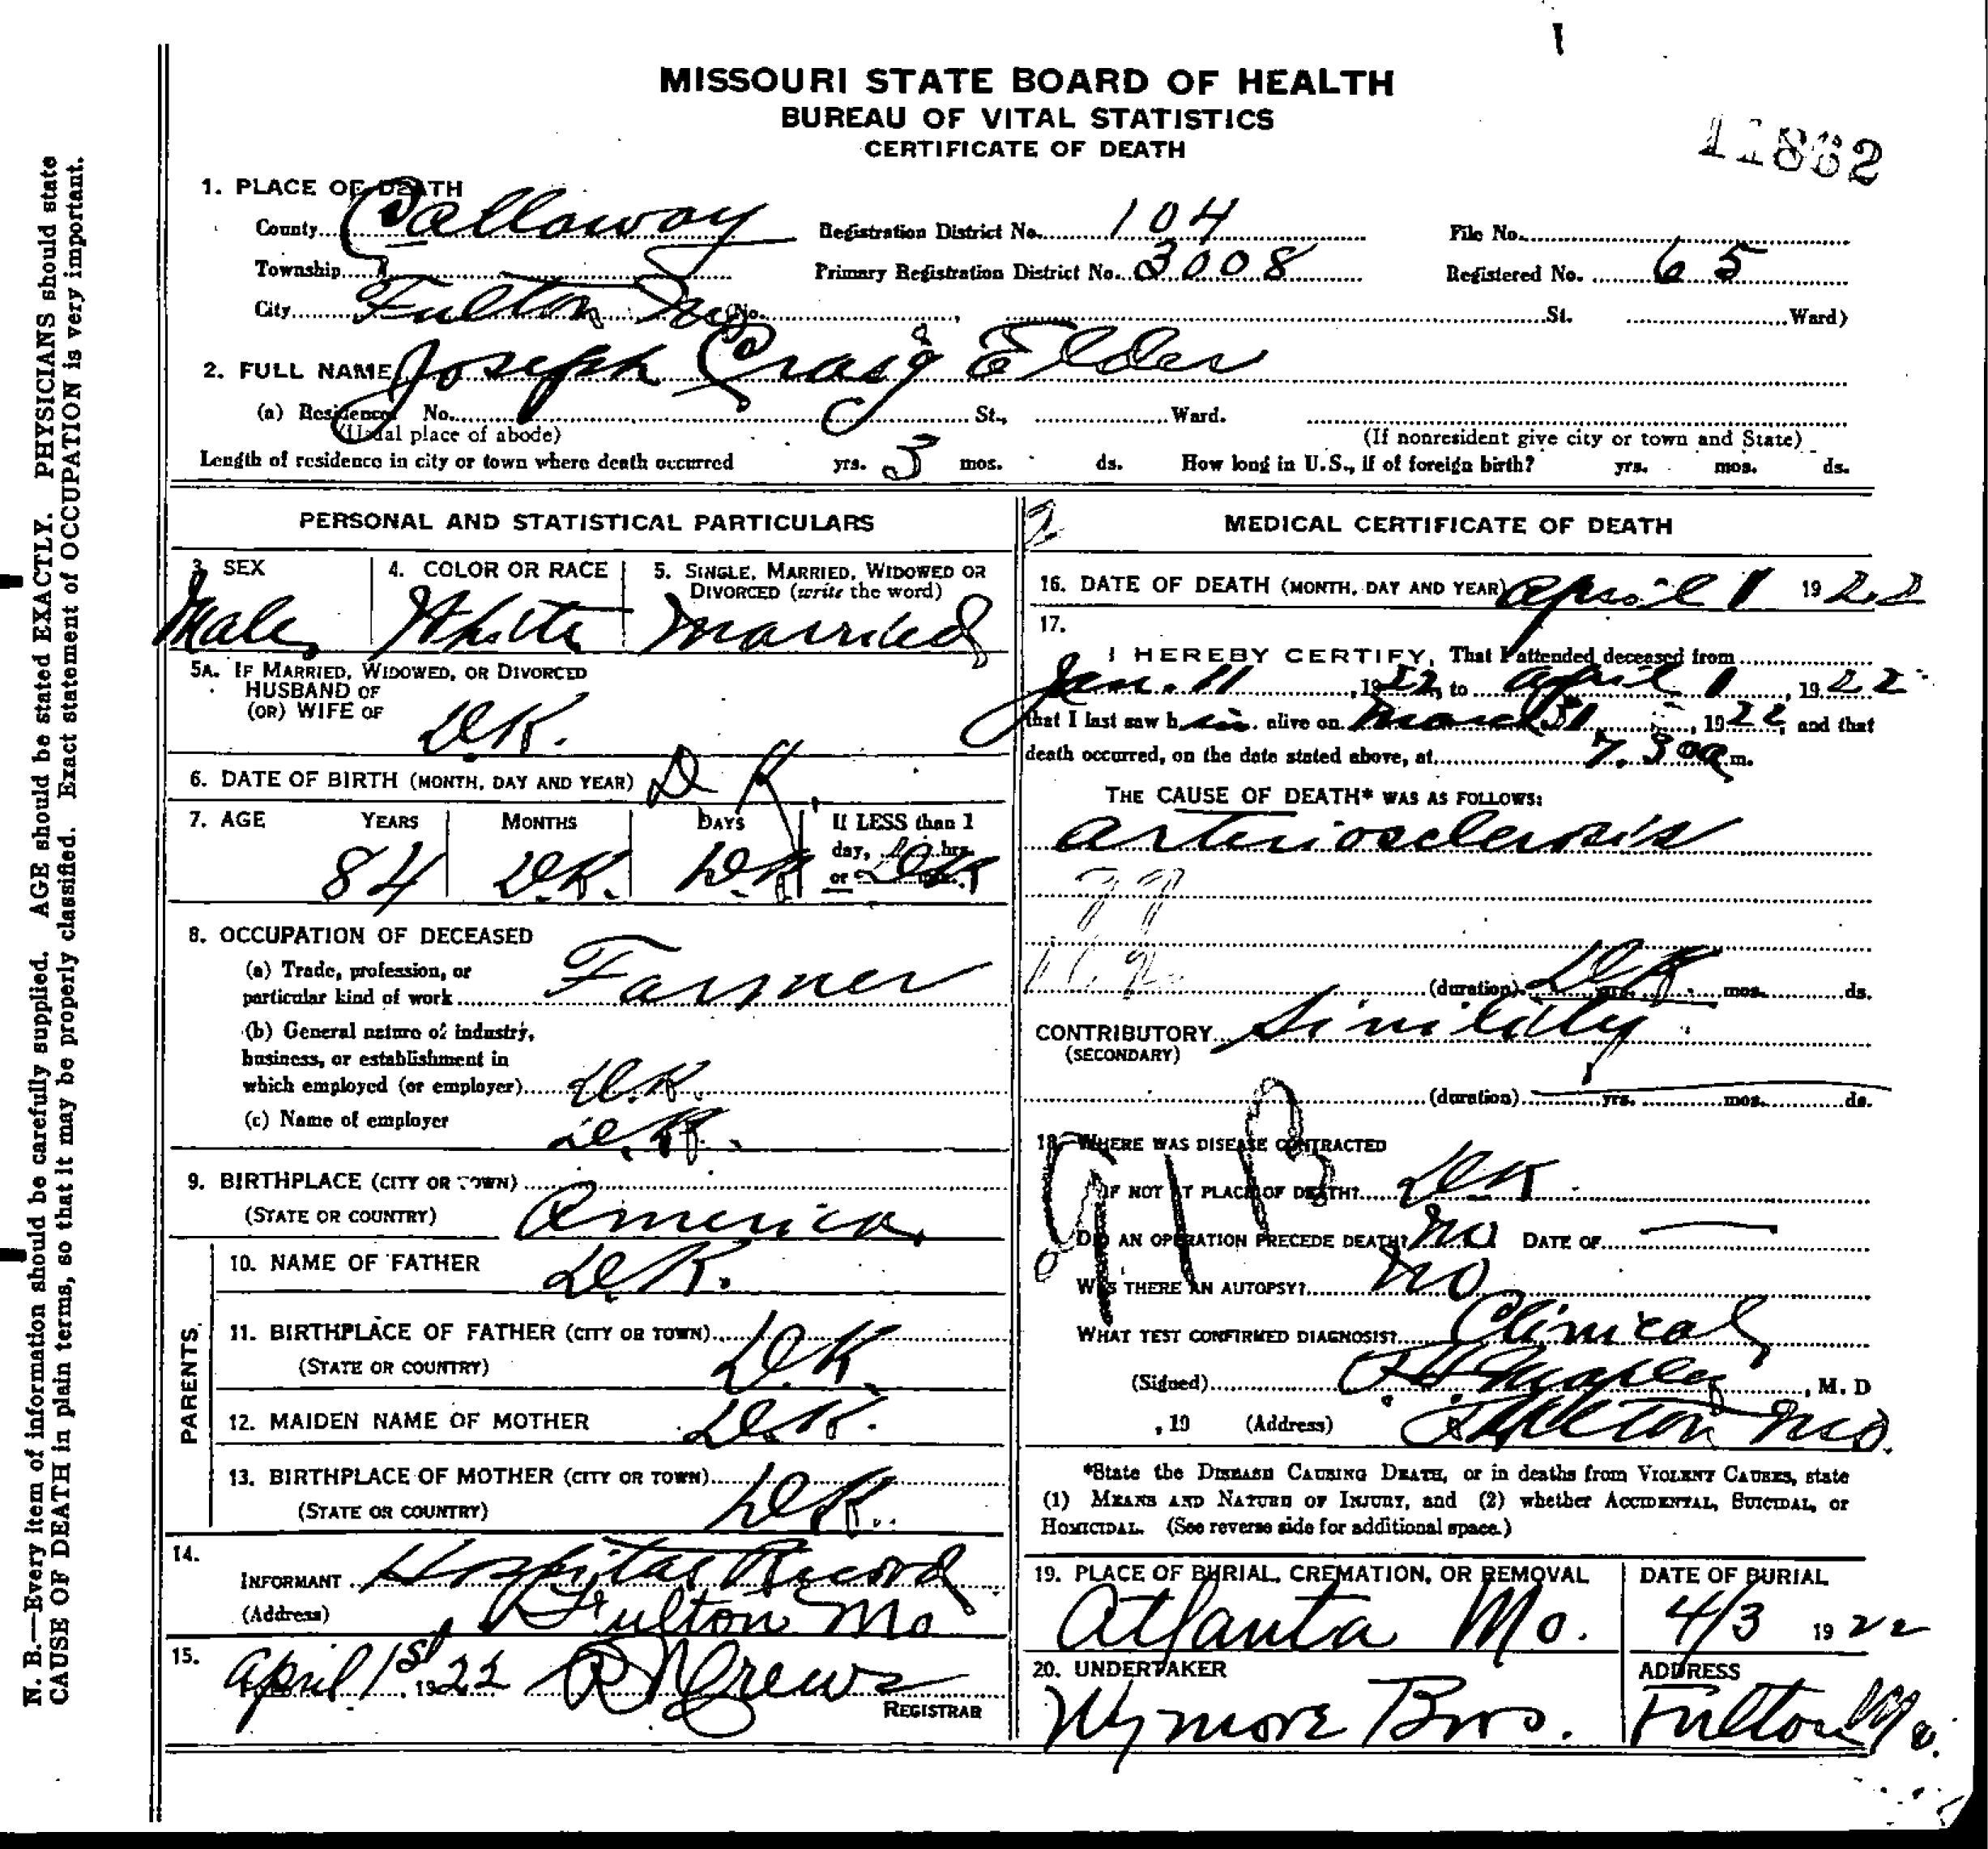 MISSOURI STATE BOARD OF HEALTH
BUREAU OF VITAL STATISTICS
CERTIFICATE OF DEATH
11862
1. PLACE OF DEATH
County Callaway Registration District No. 104 File No.
Township Primary Registration District No. 3008 Registered No. 65
City Fulton Mo (No. , St. Ward)
2. FULL NAME Joseph Craig Elder
(a) Residence No. St., Ward.
(Usual place of abode) (If nonresident give city or town and State)
Length of residence in city or town where death occurred yrs. 3 mos. ds. How long in U.S., if of foreign birth? yrs. mos. ds.
PERSONAL AND STATISTICAL PARTICULARS
3. SEX 4. COLOR OR RACE 5. SINGLE, MARRIED, WIDOWED OR
DIVORCED (write the word)
Male White Married
5A. IF MARRIED, WIDOWED, OR DIVORCED
HUSBAND OF
(OR) WIFE OF D.K.
6. DATE OF BIRTH (MONTH, DAY AND YEAR) D K
7. AGE YEARS MONTHS DAYS If LESS than 1
day, hrs.
84 D.K. D.K or D.K min.
8. OCCUPATION OF DECEASED
(a) Trade, profession, or
particular kind of work Farmer
(b) General nature of industry,
business, or establishment in
which employed (or employer) D.K.
(c) Name of employer D.K.
9. BIRTHPLACE (CITY OR TOWN)
(STATE OR COUNTRY) America
PARENTS
10. NAME OF FATHER D.K.
11. BIRTHPLACE OF FATHER (CITY OR TOWN) D.K.
(STATE OR COUNTRY)
12. MAIDEN NAME OF MOTHER D.K.
13. BIRTHPLACE OF MOTHER (CITY OR TOWN) D.K.
(STATE OR COUNTRY)
14.
INFORMANT Hospital Record
(Address) Fulton Mo
15. April 1st, 1922 R N Crews
REGISTRAR
MEDICAL CERTIFICATE OF DEATH
16. DATE OF DEATH (MONTH, DAY AND YEAR) April 1 1922
17.
I HEREBY CERTIFY, That I attended deceased from
Jan. 11, 1922, to April 1, 1922
that I last saw him alive on March 31, 1922, and that
death occurred, on the date stated above, at 7.30 a m.
THE CAUSE OF DEATH* WAS AS FOLLOWS:
Arteriosclerosis
(duration) D K yrs. mos. ds.
CONTRIBUTORY Sinility
(SECONDARY)
(duration) yrs. mos. ds.
91B
18. WHERE WAS DISEASE CONTRACTED
IF NOT AT PLACE OF DEATH? D.K.
DID AN OPERATION PRECEDE DEATH? No DATE OF
WAS THERE AN AUTOPSY? No
WHAT TEST CONFIRMED DIAGNOSIS? Clinical
(Signed) , M. D
, 19 (Address) Fulton Mo.
*State the DISEASE CAUSING DEATH, or in deaths from VIOLENT CAUSES, state
(1) MEANS AND NATURE OF INJURY, and (2) whether ACCIDENTAL, SUICIDAL, or
HOMICIDAL. (See reverse side for additional space.)
19. PLACE OF BURIAL, CREMATION, OR REMOVAL DATE OF BURIAL
Atlanta Mo. 4/3 1922
20. UNDERTAKER ADDRESS
Wymore Bros. Fulton Mo.
N. B.—Every item of information should be carefully supplied. AGE should be stated EXACTLY. PHYSICIANS should state
CAUSE OF DEATH in plain terms, so that it may be properly classified. Exact statement of OCCUPATION is very important.